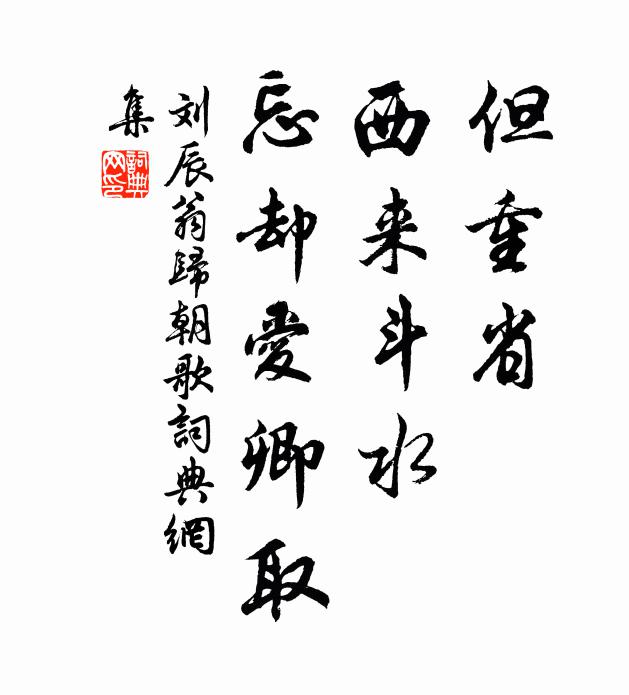 但重省
西来斗水
忘却愛卿取
刘辰翁歸朝歌詞典網
集
詞典网印